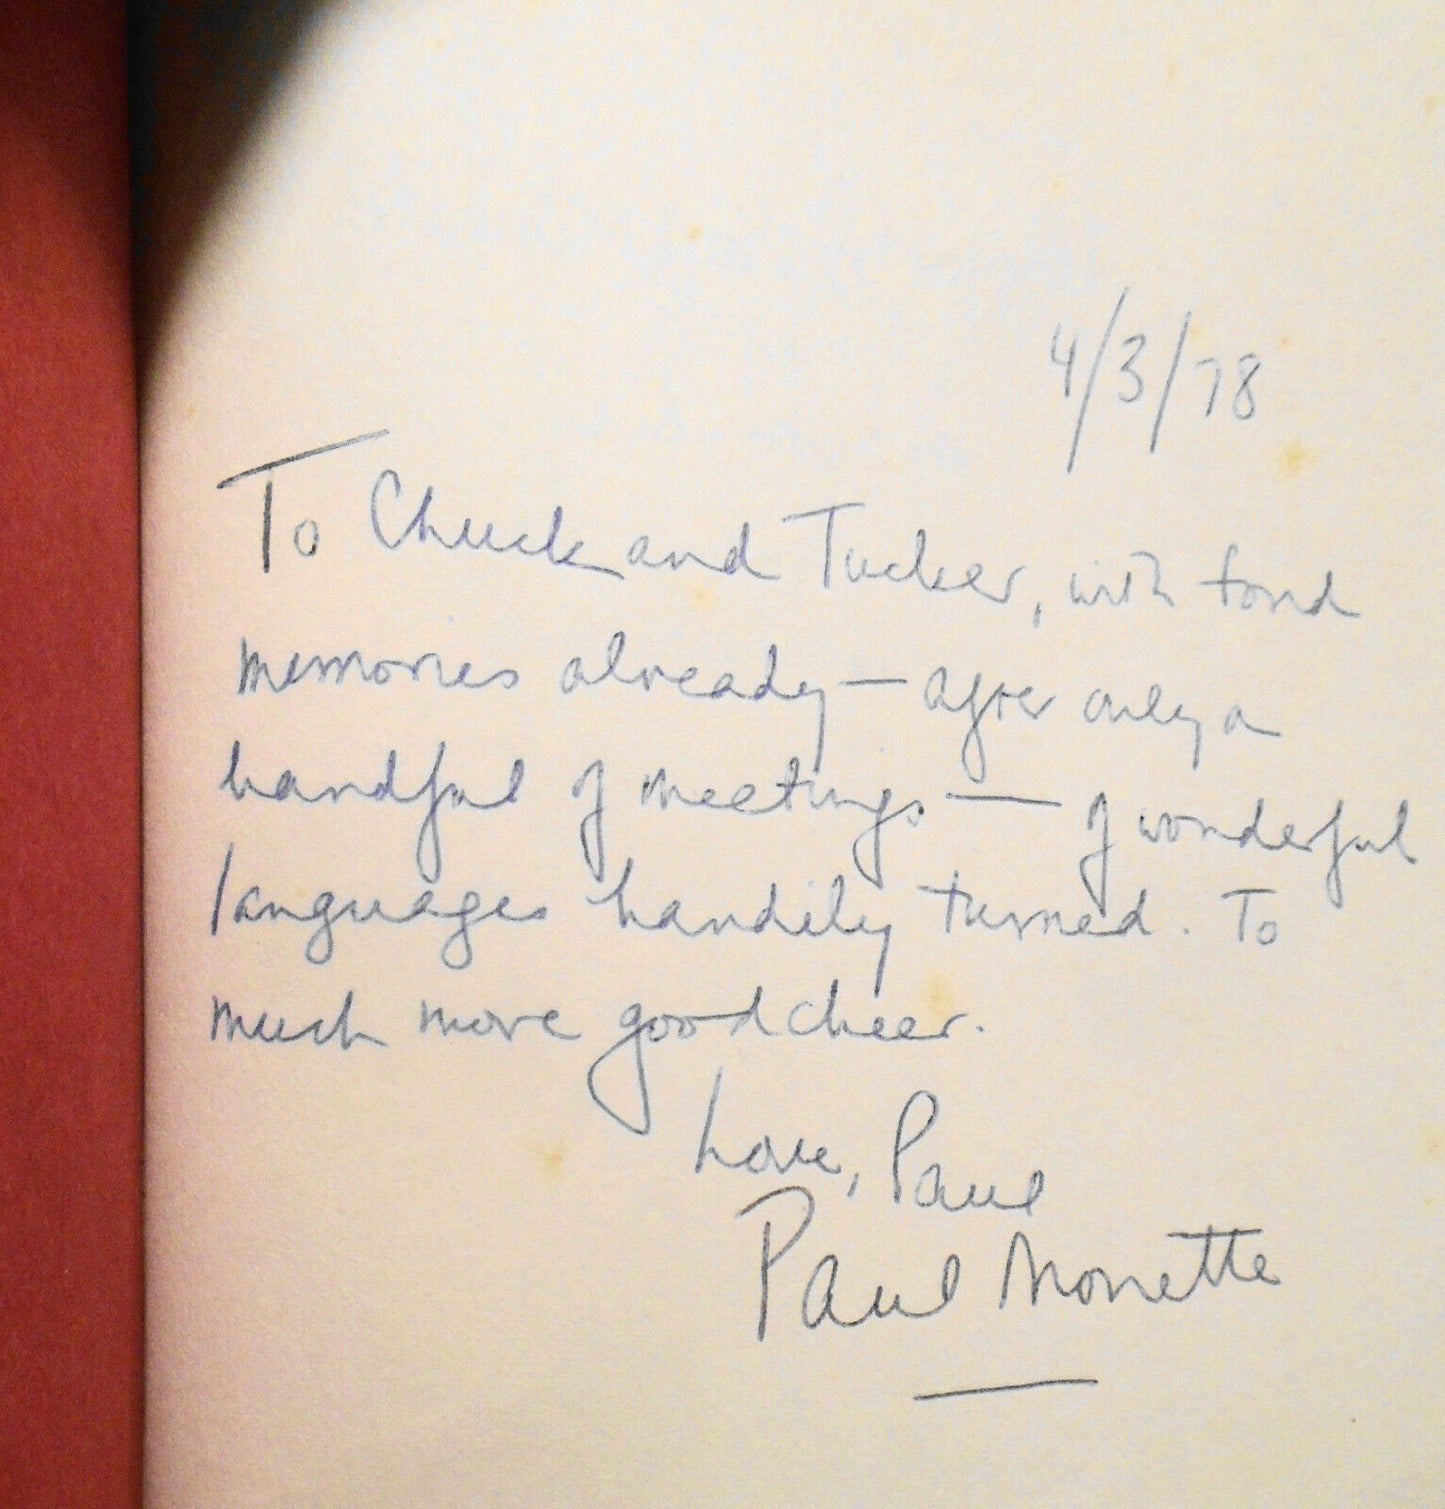 4/3/78
To Chuck and Tucker, with fond
memories already — after only a
handful of meetings — of wonderful
languages handily turned. To
much more good cheer.
Love, Paul
Paul Monette